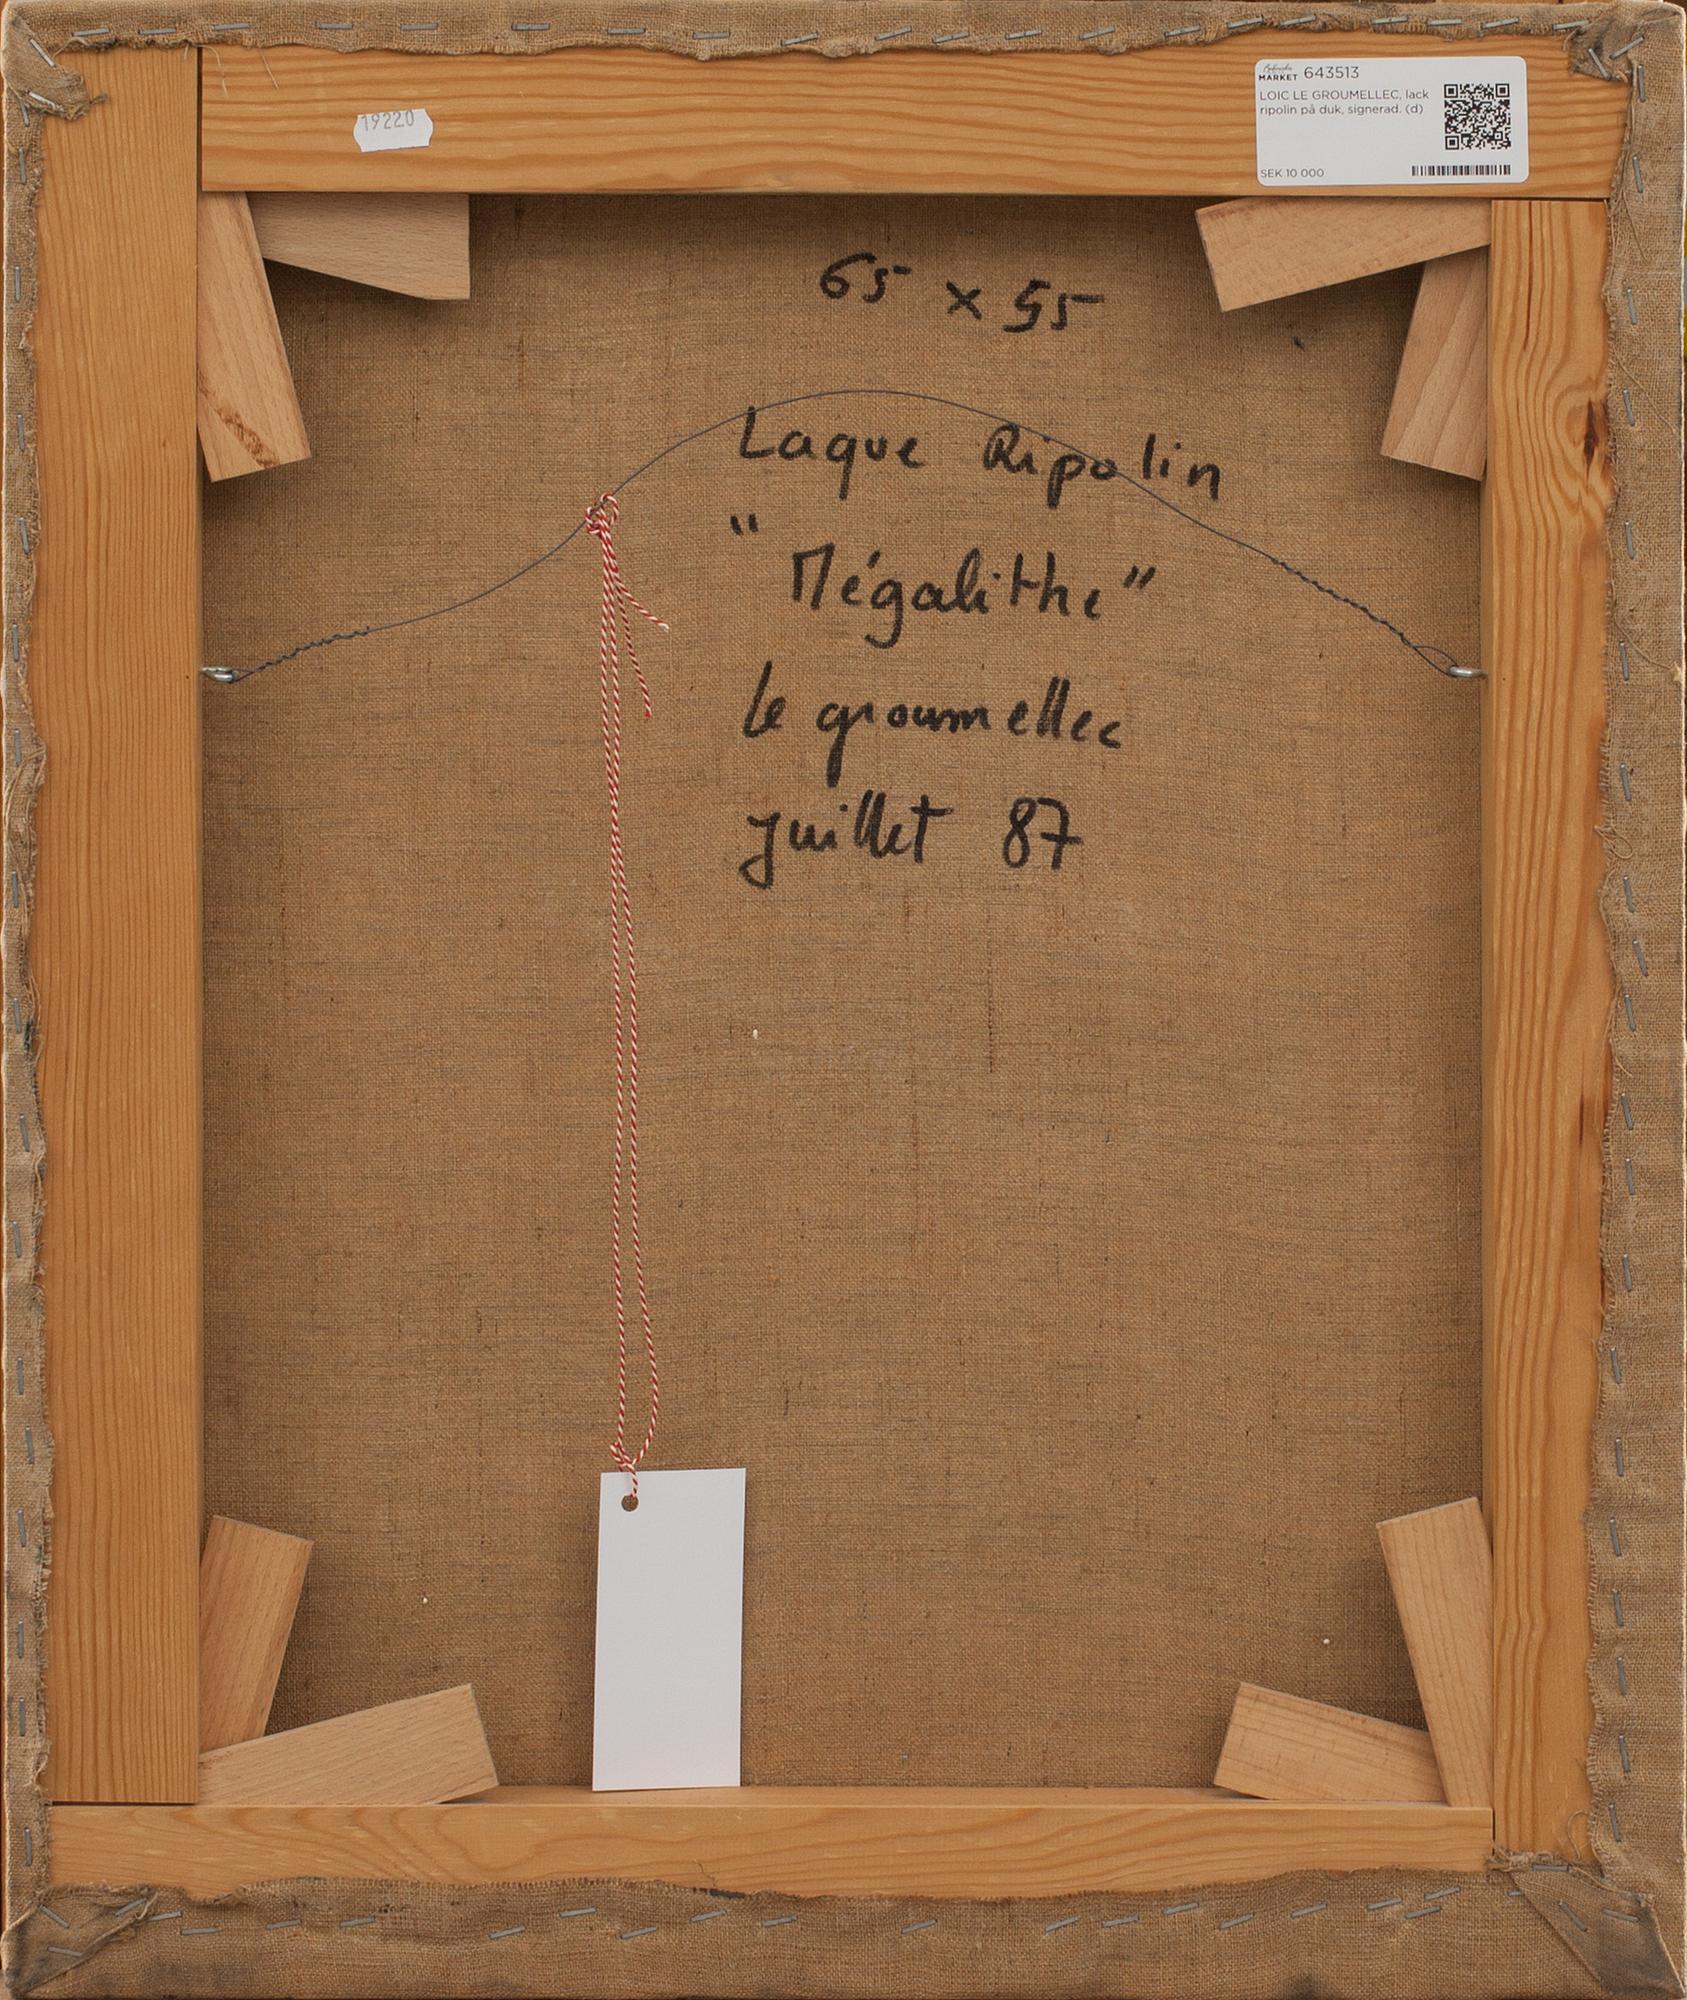 19220
Bukowskis
MARKET 643513
LOIC LE GROUMELLEC, lack
ripolin på duk, signerad. (d)
SEK 10 000
65 x 55
Laque Ripolin
"
Mégalithe"
le groumellec
juillet 87